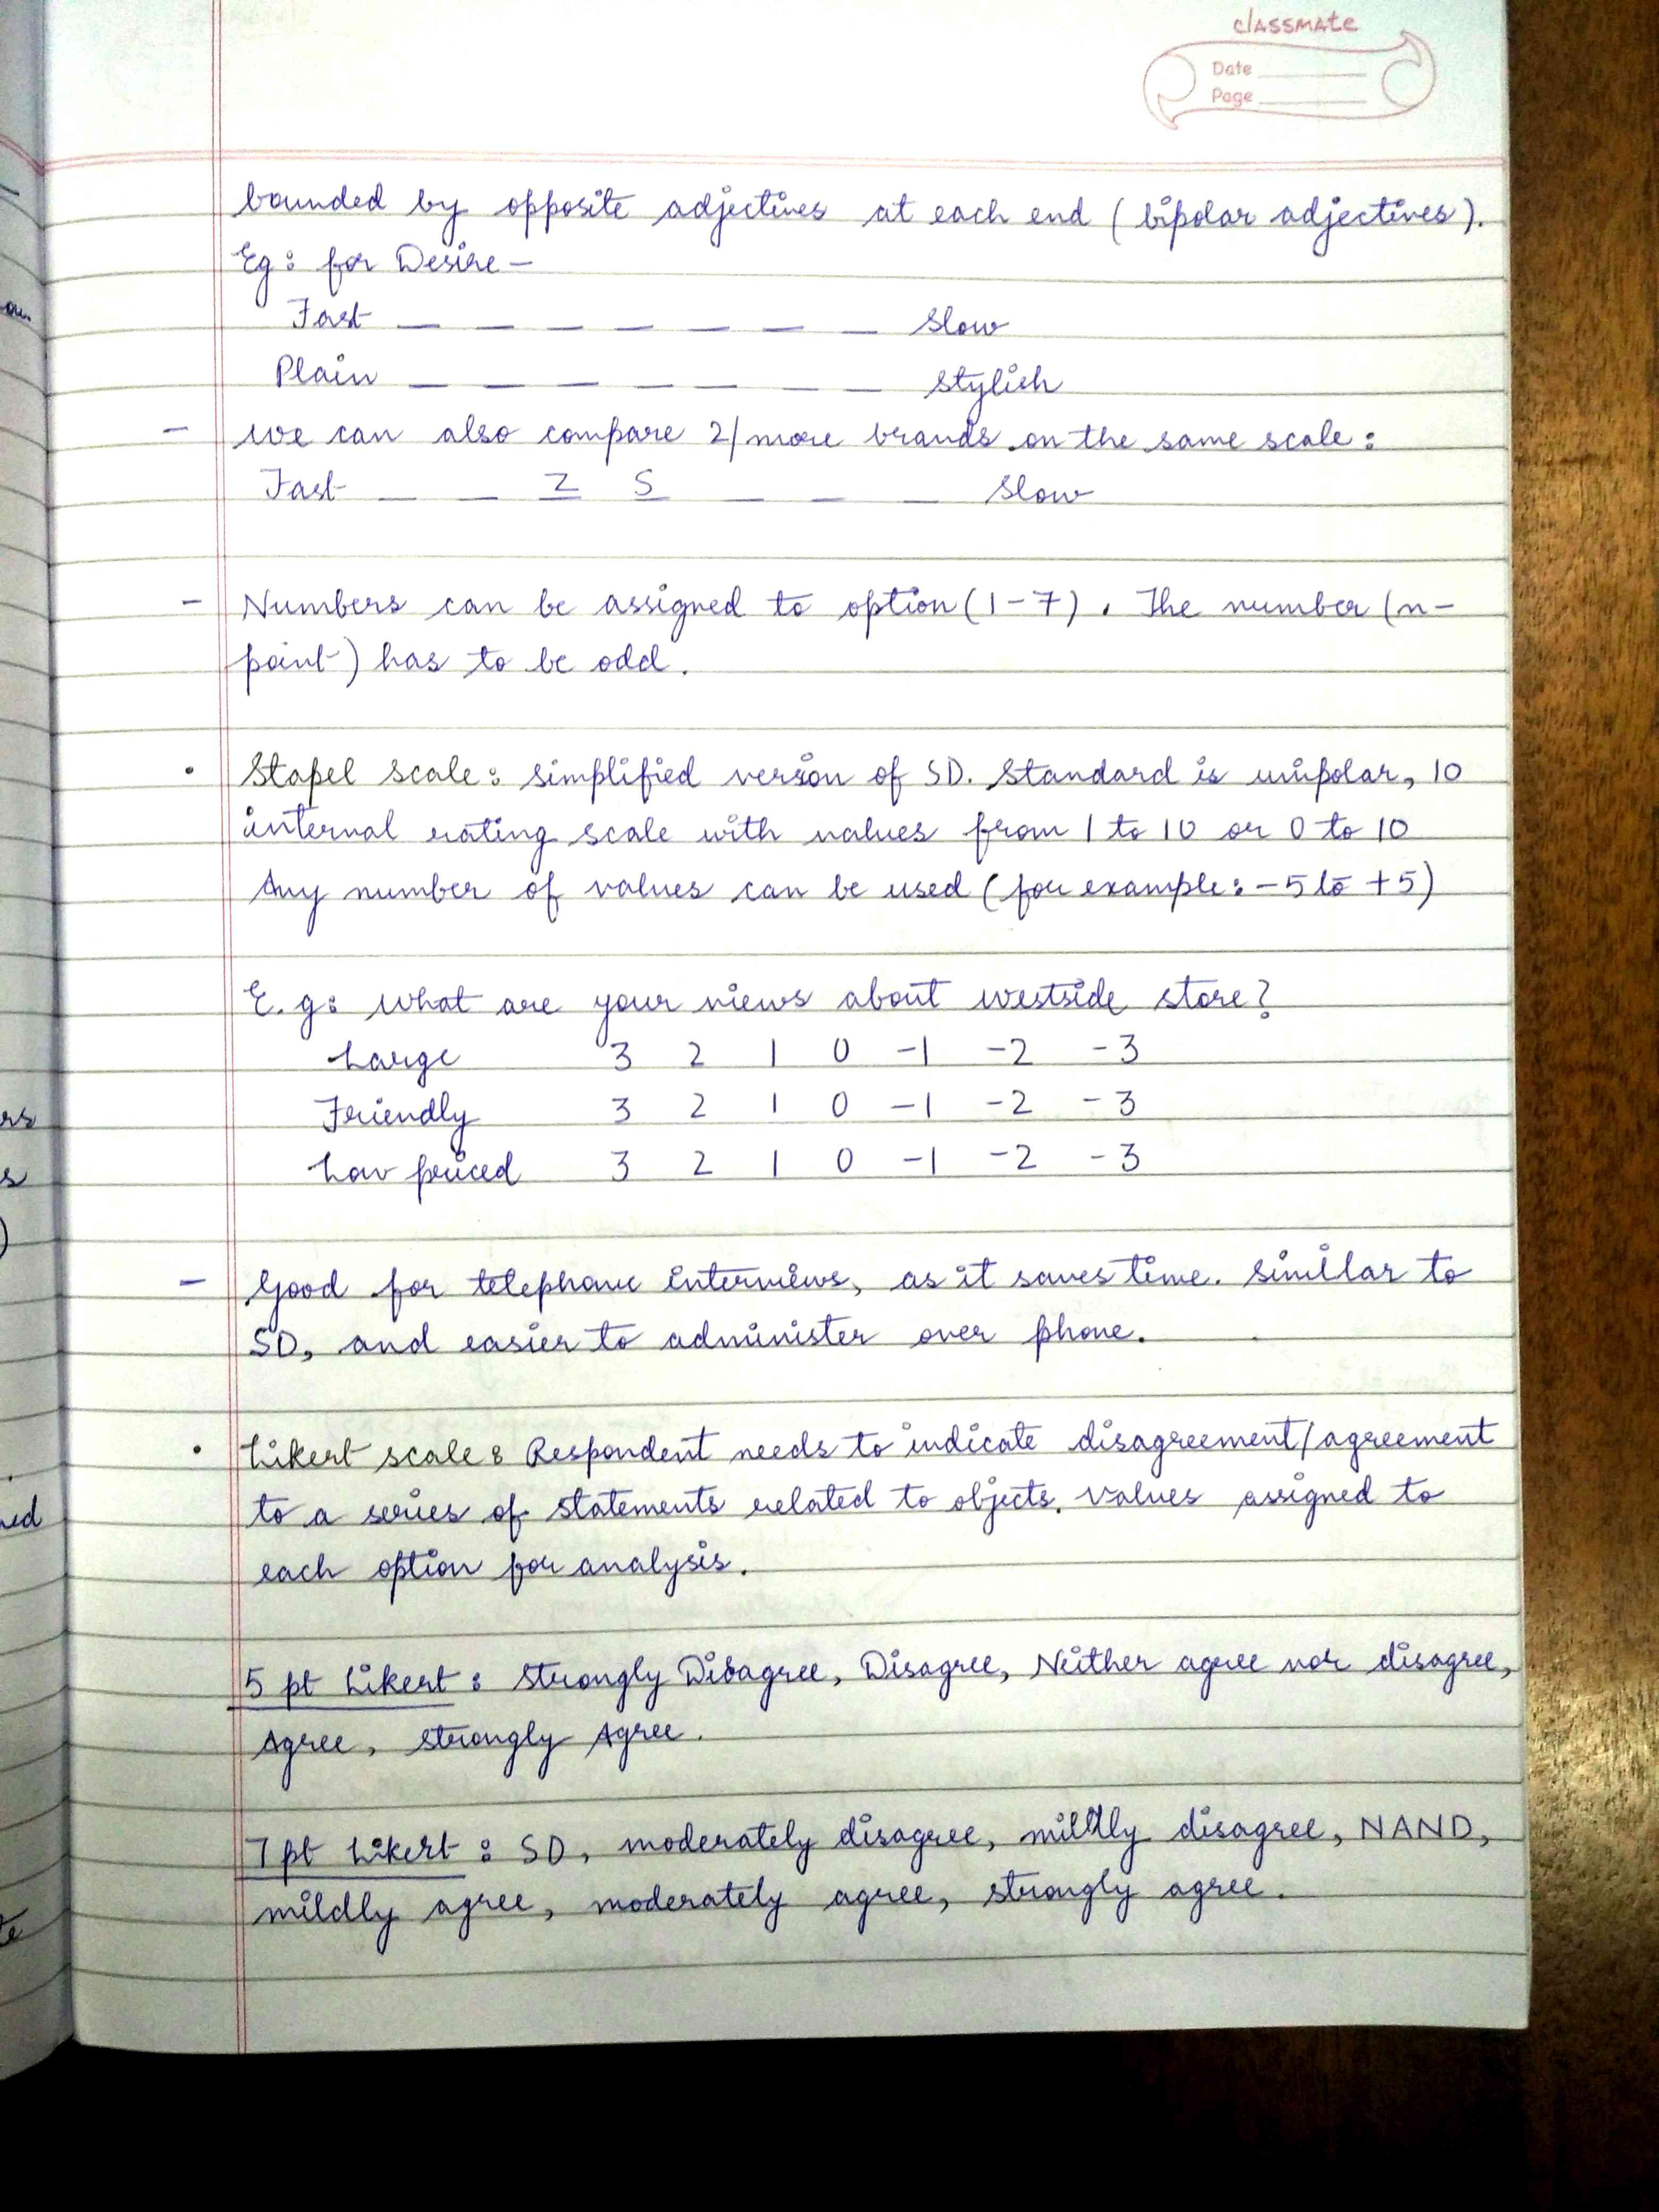 classmate
Date
Page
bounded by opposite adjectives at each end (bipolar adjectives).
Eg: for Desire -
Fast _ _ _ _ _ _ _ Slow
Plain _ _ _ _ _ _ _ Stylish
- We can also compare 2/more brands on the same scale:
Fast _ _ Z S _ _ _ Slow
- Numbers can be assigned to option (1-7). The number (n-
point) has to be odd.
• Stapel scale: simplified version of SD. Standard is unipolar, 10
internal rating scale with values from 1 to 10 or 0 to 10
Any number of values can be used (for example: -5 to +5)
E.g: What are your views about westside store?
Large 3 2 1 0 -1 -2 -3
Friendly 3 2 1 0 -1 -2 -3
Low priced 3 2 1 0 -1 -2 -3
- Good for telephone interviews, as it saves time. Similar to
SD, and easier to administer over phone.
• Likert scale: Respondent needs to indicate disagreement/agreement
to a series of statements related to objects. Values assigned to
each option for analysis.
5 pt Likert: Strongly Disagree, Disagree, Neither agree nor disagree,
Agree, Strongly Agree.
7 pt Likert: SD, moderately disagree, mildly disagree, NAND,
mildly agree, moderately agree, strongly agree.